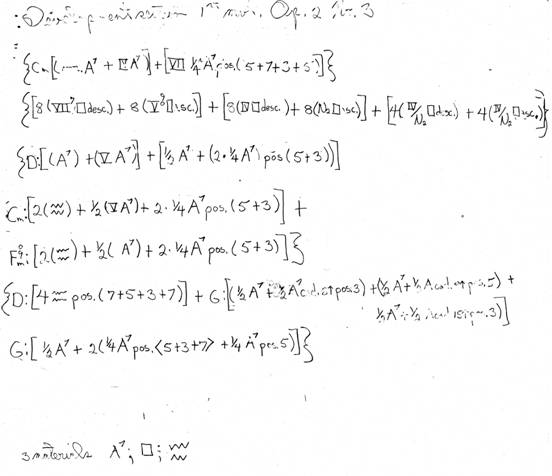 1ᵉʳ mov. Op. 2 Nr. 3
{Cm[( A⁷ + IV A⁷)]+[VII ¼ A⁷ pos. (5+7+3+5)]}
{[8(VII⁷ □ desc.) + 8(V □ asc.)] + [8(IV □ desc.) + 8(N₂ □ asc)] + [4(IV/N₂ □ d.sc.) + 4(IV/N₂ □ asc.)]}
{D:[(A⁷) + (V A⁷)] + [½ A⁷ + (2 · ¼ A⁷) pos (5+3)]
Cm:[2(≈) + ½(V A⁷) + 2 · ¼ A⁷ pos. (5+3)] +
Fm:[2(≈) + ½( A⁷) + 2 · ¼ A⁷ pos. (5+3)]}
{D:[4 ≈ pos. (7+5+3+7)] + G:[(½ A⁷ + ½ A⁷ cad. st pos 3) + (½ A⁷ + ½ A cad. st pos. 5) +
½ A⁷ + ½ A cad 3)]
G:[½ A⁷ + 2(¼ A⁷ pos. <5+3+7> + ¼ A⁷ pos. 5)]}
3 materials A⁷; □; ≈